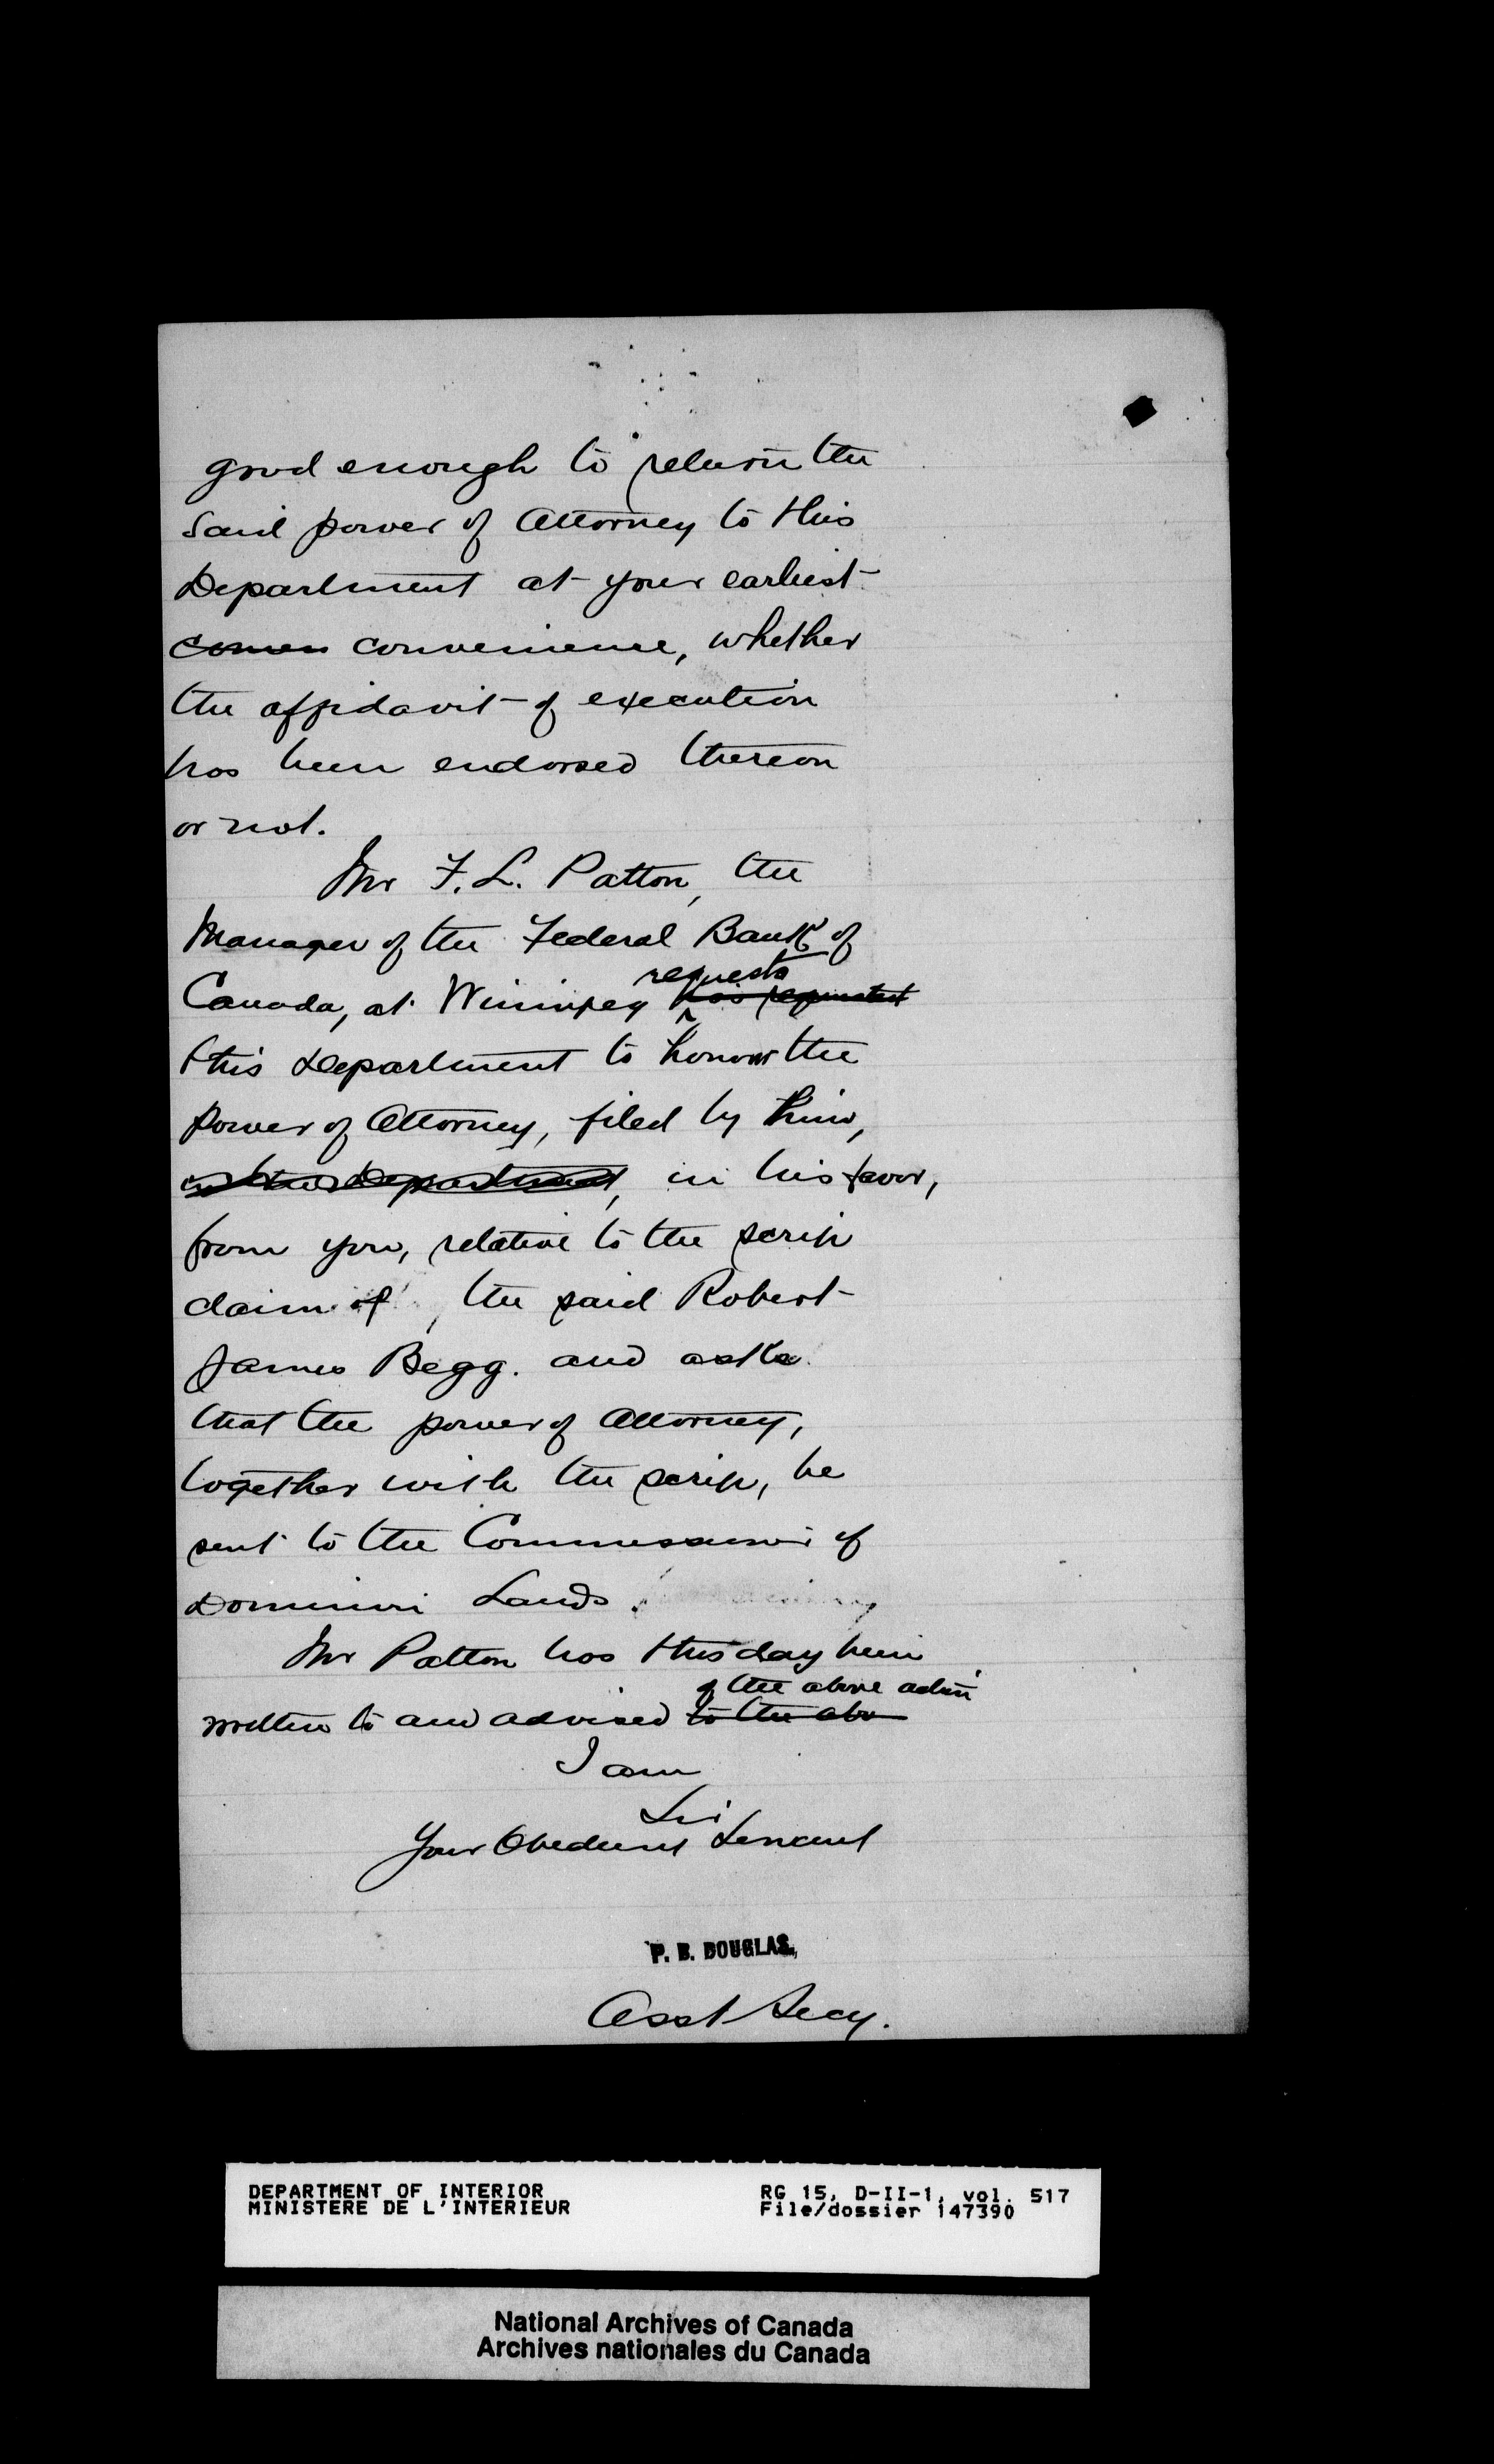 good enough to return the
said power of Attorney to this
Department at your earliest
conven convenience, whether
the affidavit of execution
has been endorsed thereon
or not.
Mr F. L. Patton, the
Manager of the Federal Bank of
requests
Canada, at Winnipeg has requested
this Department to honour the
power of Attorney, filed by him,
in this Department, in his favor,
from you, relative to the scrip
claim of, the said Robert
James Begg. and asks
that the power of Attorney,
together with the scrip, be
sent to the Commissioner of
Dominion Lands.
Mr Patton has this day been
of the above action
written to and advised to the abo
I am
Sir
Your Obedient Servant
P. B. DOUGLAS,
Asst Secy.
DEPARTMENT OF INTERIOR
MINISTERE DE L'INTERIEUR
RG 15, D-II-1, vol. 517
File/dossier 147390
National Archives of Canada
Archives nationales du Canada